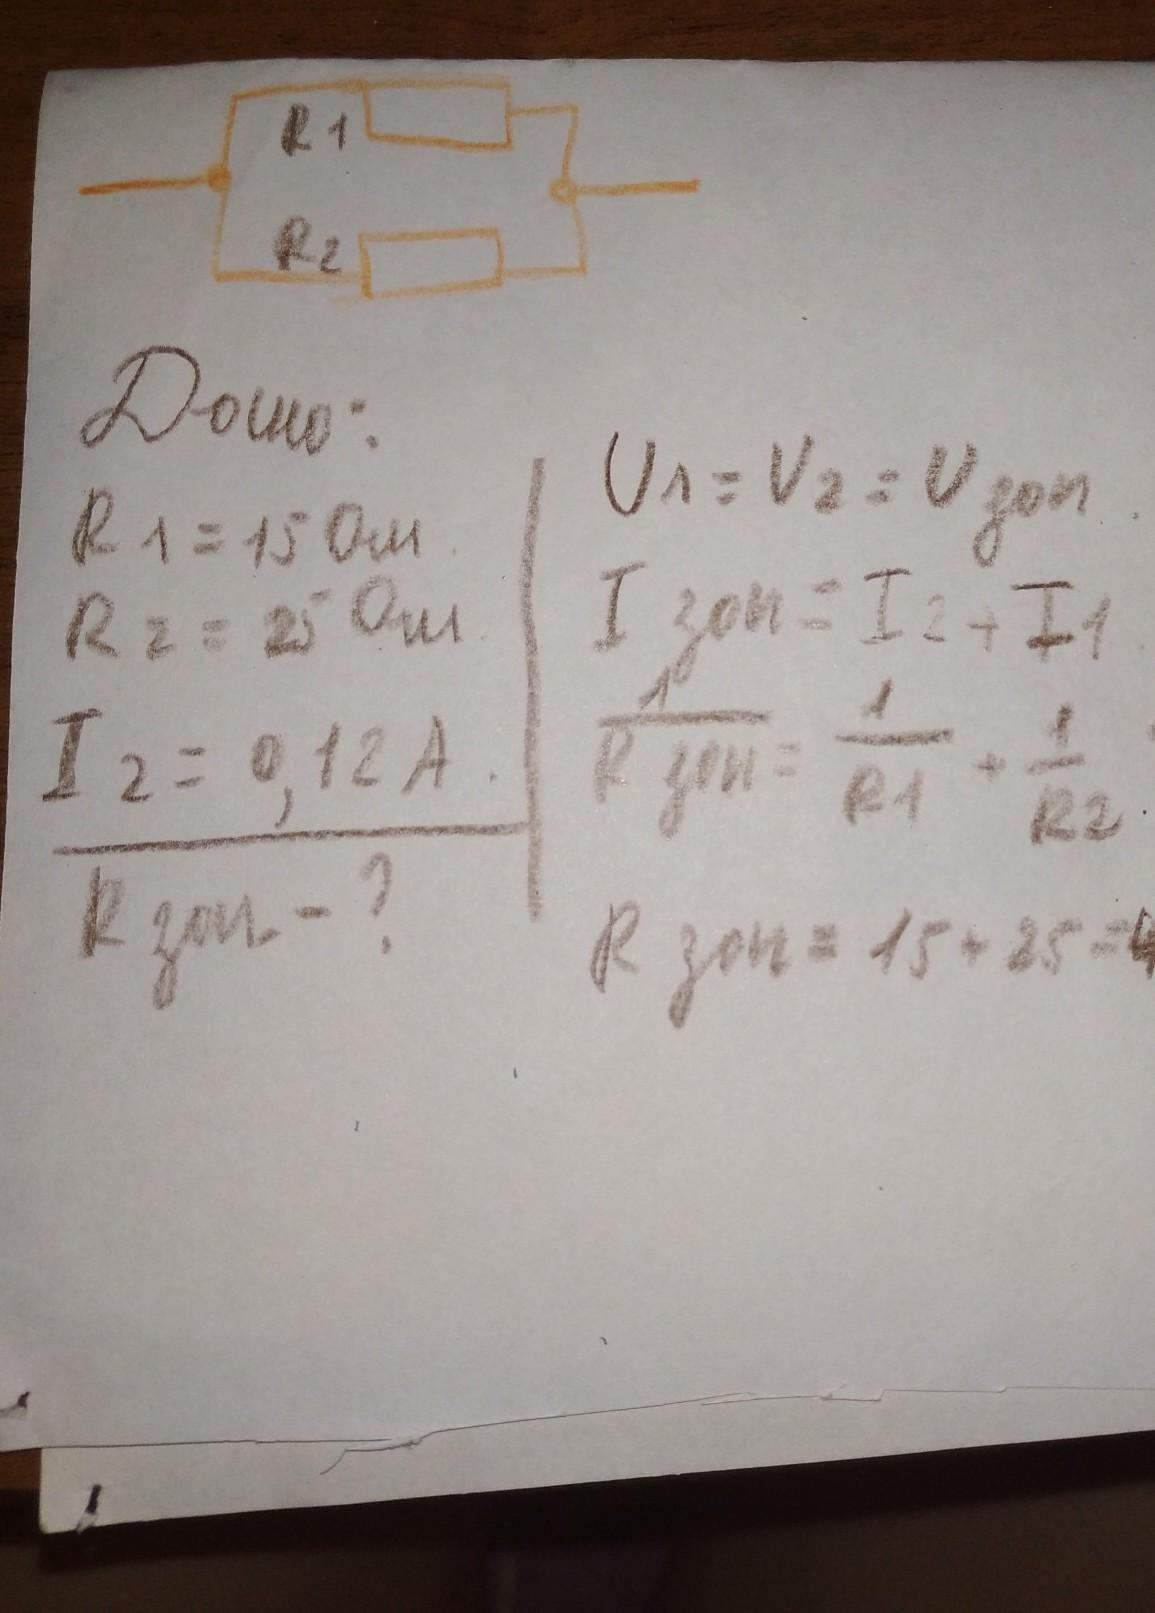 R1
R2
Дано:
R1 = 15 Ом.
R2 = 25 Ом.
I2 = 0,12 А.
R заг - ?
U1 = U2 = U заг.
I заг = I2 + I1.
1/R заг = 1/R1 + 1/R2.
R заг = 15 + 25 = 4